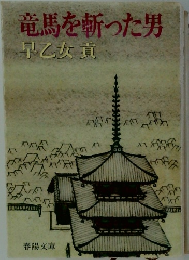 竜馬を斬った男
早乙女貢
春陽文庫